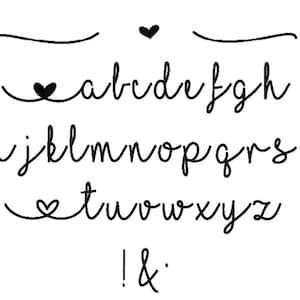 abcdefgh
jklmnopqrs
tuvwxyz
!&.